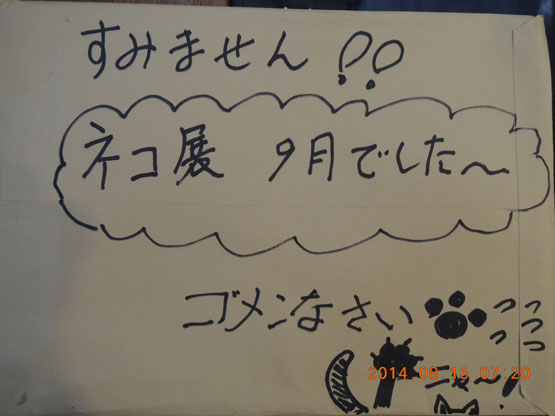 すみません!!
ネコ展 9月でした〜
ゴメンなさい
2014.08.15 07:20
ニャ〜!